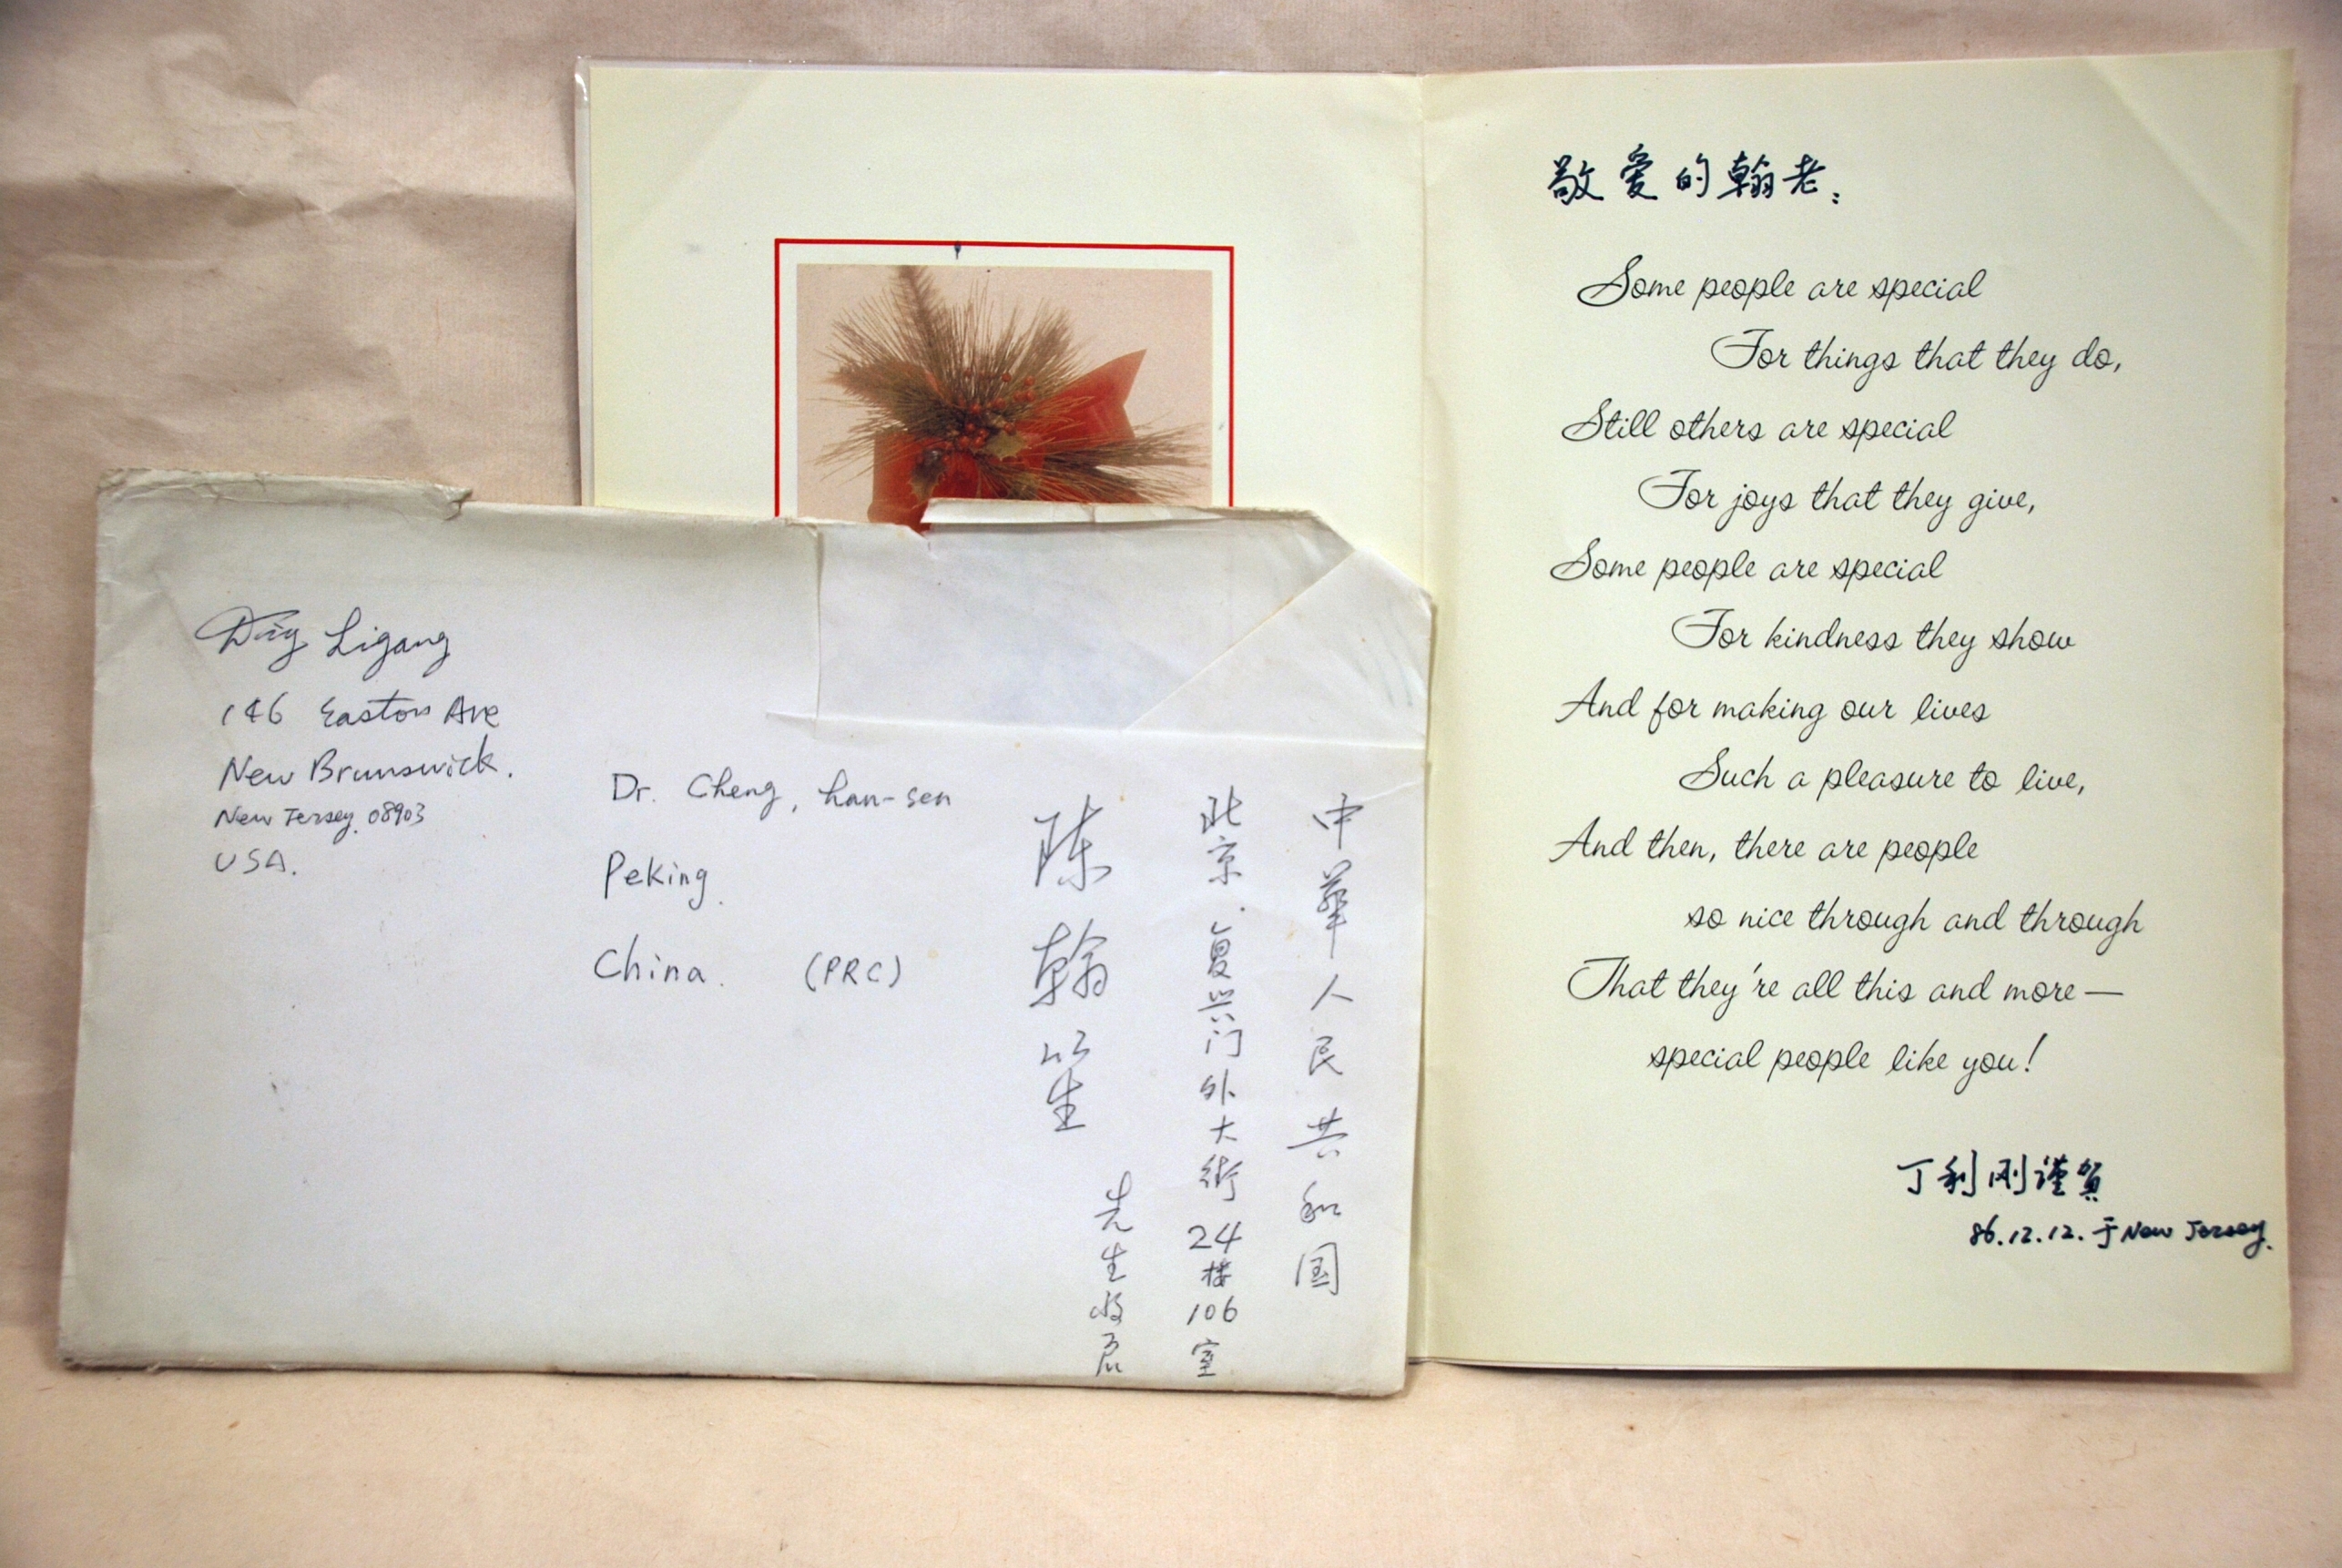 Ding Ligang
146 Easton Ave
New Brunswick.
New Jersey. 08903
USA.
Dr. Cheng, han-sen
Peking.
China. (PRC)
中華人民共和国
北京.复兴门外大街24楼106室
陈翰笙
先生收启
敬爱的翰老:
Some people are special
For things that they do,
Still others are special
For joys that they give,
Some people are special
For kindness they show
And for making our lives
Such a pleasure to live,
And then, there are people
so nice through and through
That they're all this and more—
special people like you!
丁利刚謹賀
86.12.12.于New Jersey.